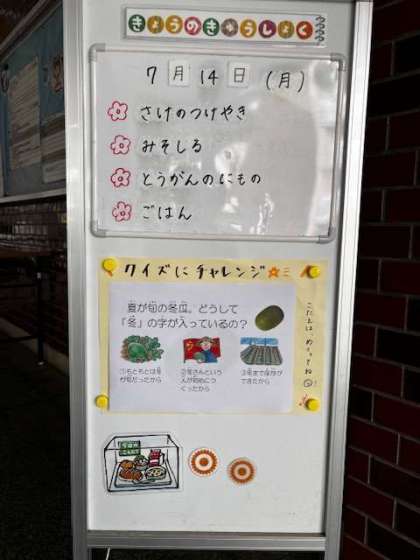 きょうのきゅうしょく
7月14日(月)
さけのつけやき
みそしる
とうがんのにもの
ごはん
クイズにチャレンジ☆三
夏が旬の冬瓜。どうして
「冬」の字が入っているの？
①もともとは冬
が旬だったから
②冬さんという
人が初めにつ
くったから
③冬まで保存が
できたから
こたえは、めくってね